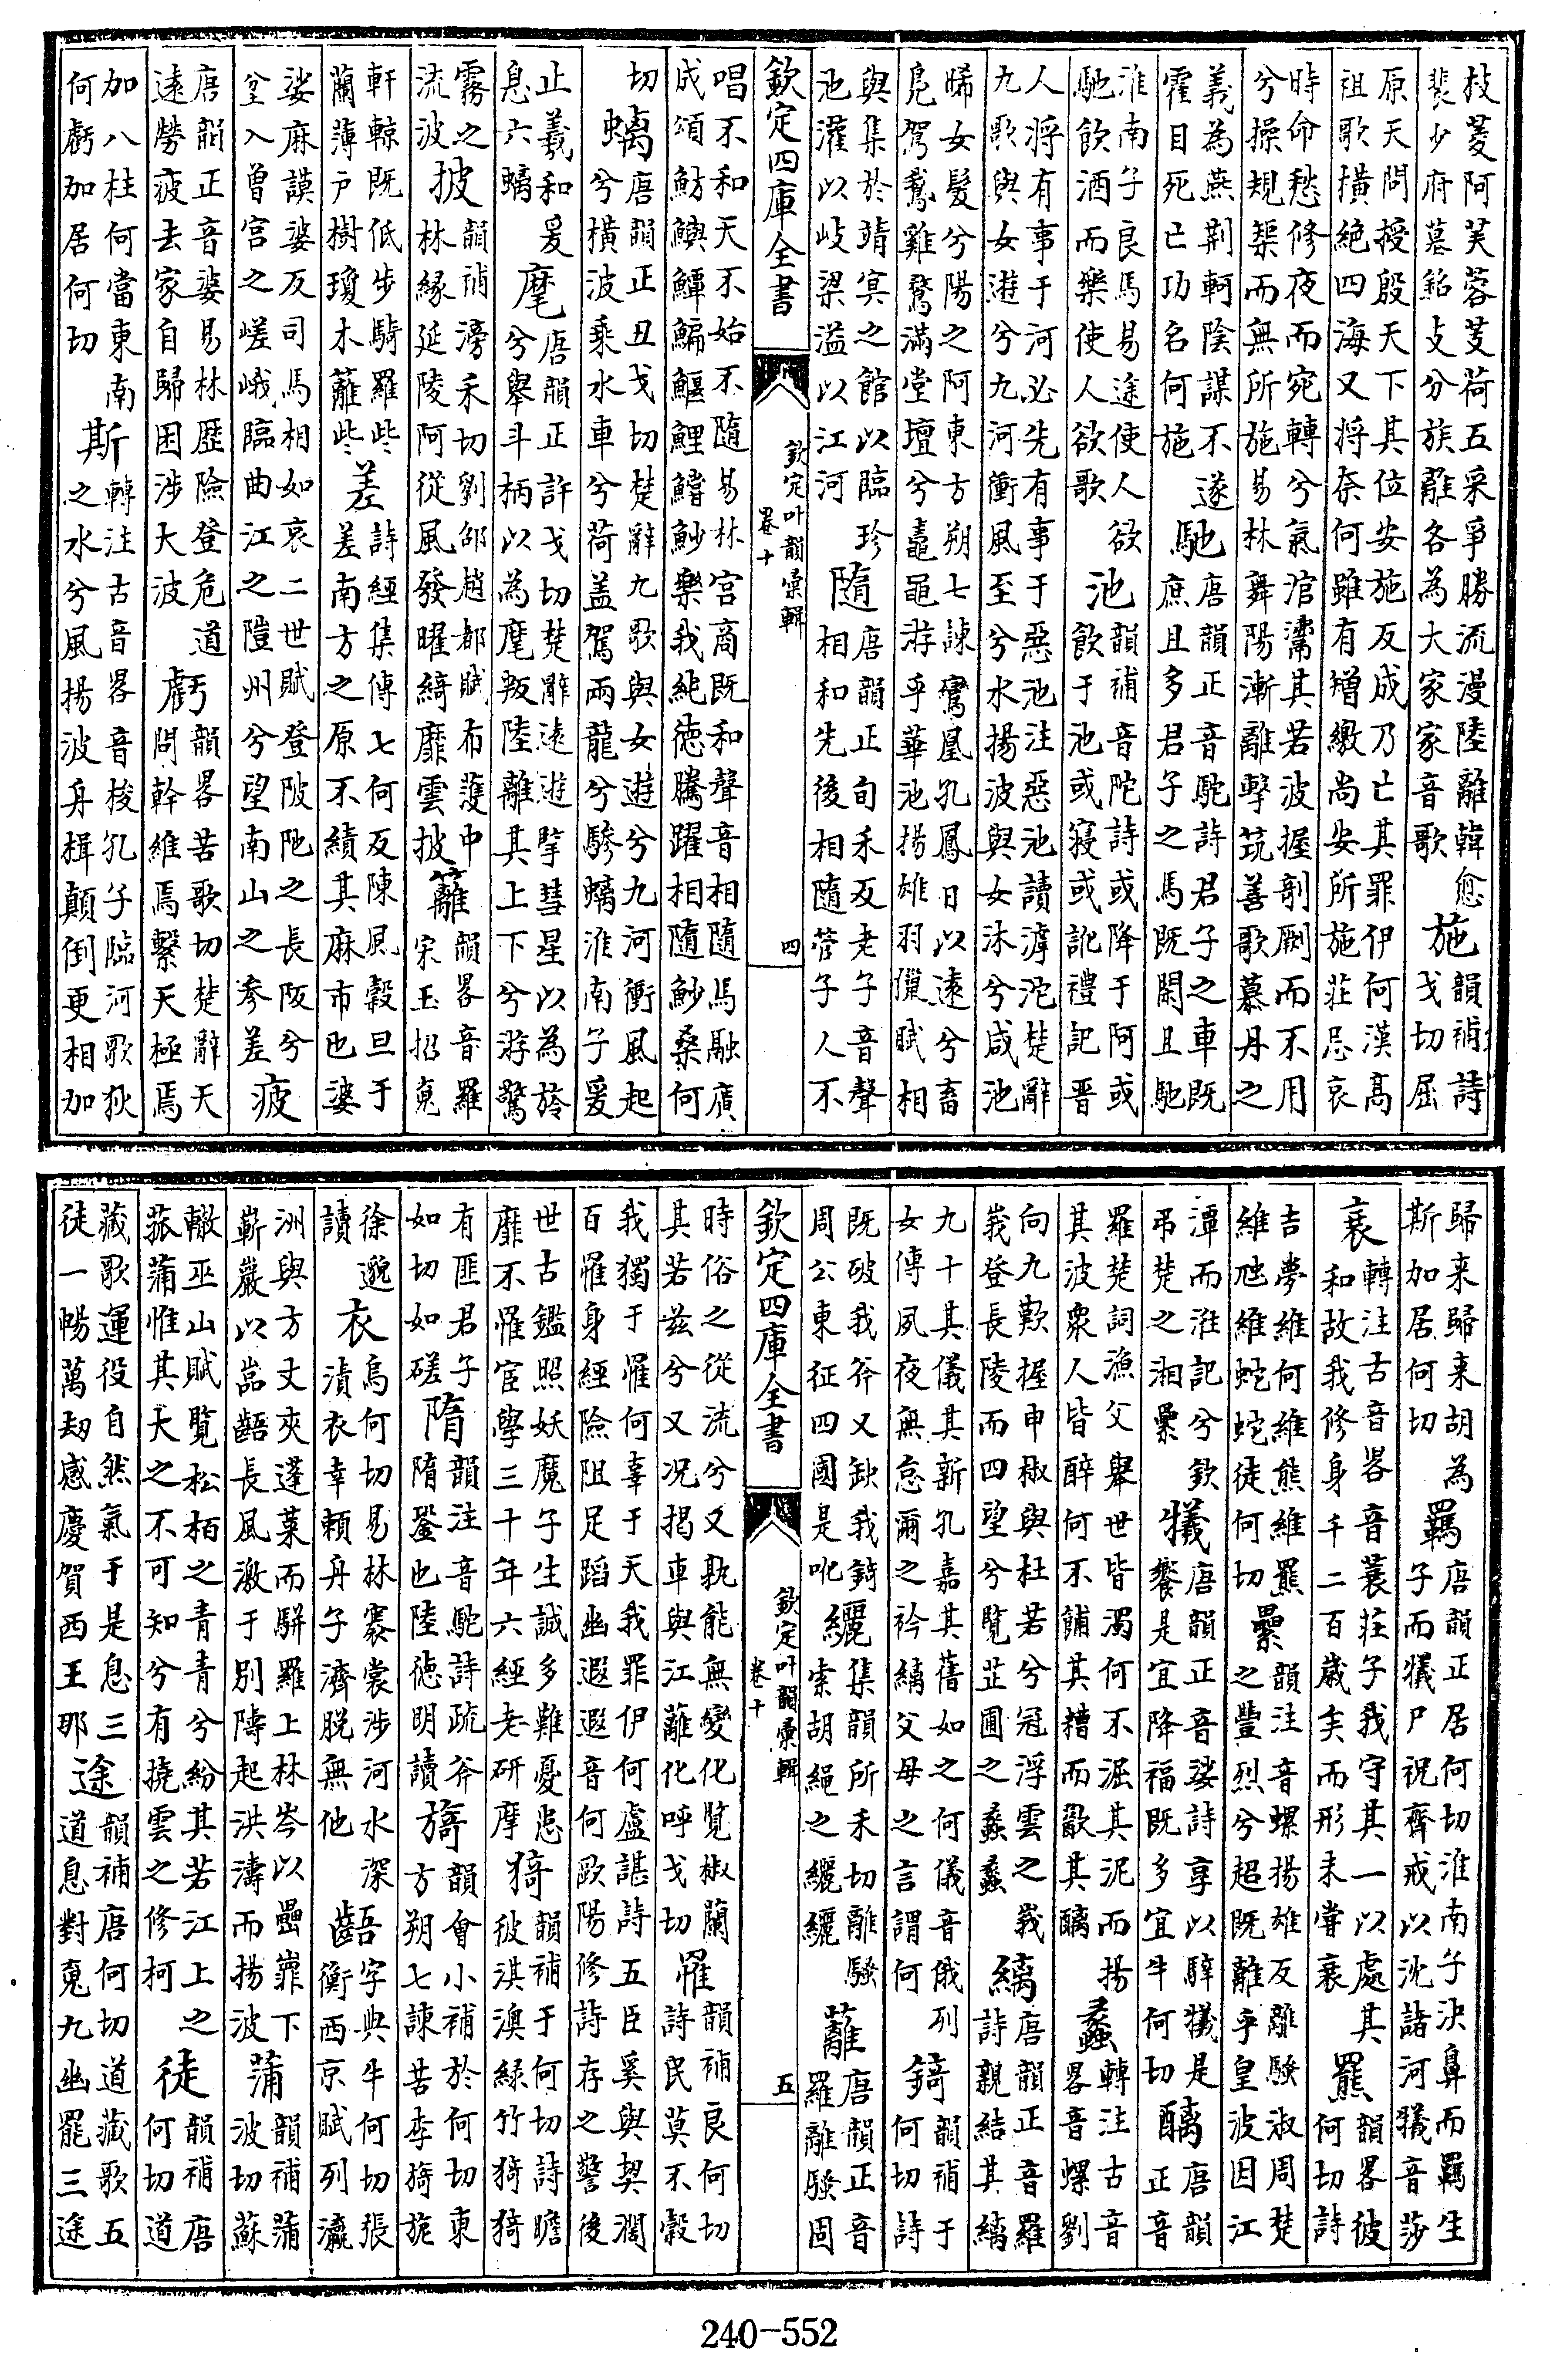 枝菱阿芙蓉芰荷五采爭勝流漫陸離韓愈
裴少府墓銘攴分族離各為大家家音歌
施
韻補詩
戈切屈
原天問授殷天下其位安施反成乃亡其罪伊何漢髙
祖歌橫絶四海又将奈何雖有矰繳尚安所施莊忌哀
時命愁修夜而宛轉兮氣涫其若波握剞劂而不用
兮操規榘而無所施易林舞陽漸離擊筑善歌慕丹之
義為燕荆軻陰謀不遂
霍目死亡功名何施
馳
唐韻正音駝詩君子之車既
庶且多君子之馬既閑且馳
淮南子良馬易途使人欲
馳飲酒而樂使人欲歌
池
韻補音陀詩或降于阿或
飲于池或寝或訛禮記晉
人将有事于河必先有事于惡池注惡池讀滹沱楚辭
九歌與女遊兮九河衝風至兮水揚波與女沐兮咸池
晞女髮兮陽之阿東方朔七諫鸞凰孔鳳日以遠兮畜
鳧駕鵞雞鶩滿堂壇兮鼁黽游乎華池揚雄羽獵賦相
與集於靖冥之館以臨珍
池灌以岐梁溢以江河
隨
唐韻正旬禾反老子音聲
相和先後相隨管子人不
欽定四庫全書
欽定叶韻彚輯
卷十
四
唱不和天不始不隨易林宫商既和聲音相隨馬融廣
成頌魴鱮鱏鯿鰋鯉鱨魦樂我純徳騰躍相隨魦桑何
切
螭
唐韻正丑戈切楚辭九歌與女遊兮九河衝風起
兮橫波乘水車兮荷盖駕兩龍兮驂螭淮南子爰
止羲和爰
息六螭
麾
唐韻正許戈切楚辭遠遊擥彗星以為旍
兮舉斗柄以為麾叛陸離其上下兮游驚
霧之
流波
披
韻補滂禾切劉邵趙都賦布濩中
林緣延陵阿從風發曜綺靡雲披
蘺
韻畧音羅
宋玉招䰟
軒輬既低步騎羅些
蘭薄户樹瓊木蘺些
差
詩經集傳七何反陳風榖旦于
差南方之原不績其麻市也婆
娑麻謨婆反司馬相如哀二世賦登陂陁之長阪兮
坌入曽宫之嵯峨臨曲江之隑州兮望南山之参差
疲
唐韻正音婆易林歴險登危道
遠勞疲去家自歸困涉大波
虧
韻畧苦歌切楚辭天
問幹維焉繫天極焉
加八柱何當東南
何虧加居何切
斯
轉注古音畧音梭孔子臨河歌狄
之水兮風揚波舟楫顛倒更相加
歸来歸来胡為
斯加居何切
羈
唐韻正居何切淮南子決鼻而羈生
子而犠尸祝齊戒以沈諸河犠音莎
衰
轉注古音畧音蓑莊子我守其一以處其
和故我修身千二百嵗矣而形未嘗衰
羆
韻畧彼
何切詩
吉夢維何維熊維羆
維虺維蛇蛇徒何切
纍
韻注音螺揚雄反離騷淑周楚
之豐烈兮超既離乎皇波因江
潭而淮記兮欽
弔楚之湘纍
犧
唐韻正音娑詩享以騂犠是
饗是宜降福既多宜牛何切
醨
唐韻
正音
羅楚詞漁父舉世皆濁何不淈其泥而揚
其波衆人皆醉何不餔其糟而歠其醨
蠡
轉注古音
畧音螺劉
向九歎握申椒與杜若兮冠浮雲之峩
峩登長陵而四望兮覽芷圃之蠡蠡
縭
唐韻正音羅
詩親結其縭
九十其儀其新孔嘉其舊如之何儀音俄列
女傳夙夜無怠爾之衿縭父母之言謂何
錡
韻補于
何切詩
既破我斧又缺我錡
周公東征四國是吪
纚
集韻所禾切離騷
索胡繩之纚纚
蘺
唐韻正音
羅離騷固
欽定四庫全書
欽定叶韻彚輯
卷十
五
時俗之從流兮又孰能無變化覽椒蘭
其若兹兮又况揭車與江離化呼戈切
罹
韻補良何切
詩民莫不榖
我獨于罹何辜于天我罪伊何盧諶詩五臣奚與契濶
百罹身經險阻足蹈幽遐遐音何歐陽修詩存之警後
世古鑑照妖魔子生誠多難憂患
靡不罹宦學三十年六經老研摩
猗
韻補于何切詩瞻
彼淇澳緑竹猗猗
有匪君子
如切如磋
隋
韻注音駝詩疏斧
隋銎也陸徳明讀
旖
韻會小補於何切東
方朔七諫苦李旖旎
徐邈
讀
衣
烏何切易林褰裳涉河水深
漬衣幸頼舟子濟脱無他
齬
字典牛何切張
衡西京賦列瀛
洲與方丈夾蓬莱而駢羅上林岑以壘嶵下
嶄巖以嵓齬長風激于别隯起洪濤而揚波
蒲
韻補蒲
波切蘇
轍巫山賦覽松栢之青青兮紛其若江上之
菰蒲惟其大之不可知兮有撓雲之修柯
徒
韻補唐
何切道
藏歌運役自然氣于是息三
徒一暢萬刼感慶賀西王那
途
韻補唐何切道藏歌五
道息對䰟九幽罷三途
240-552